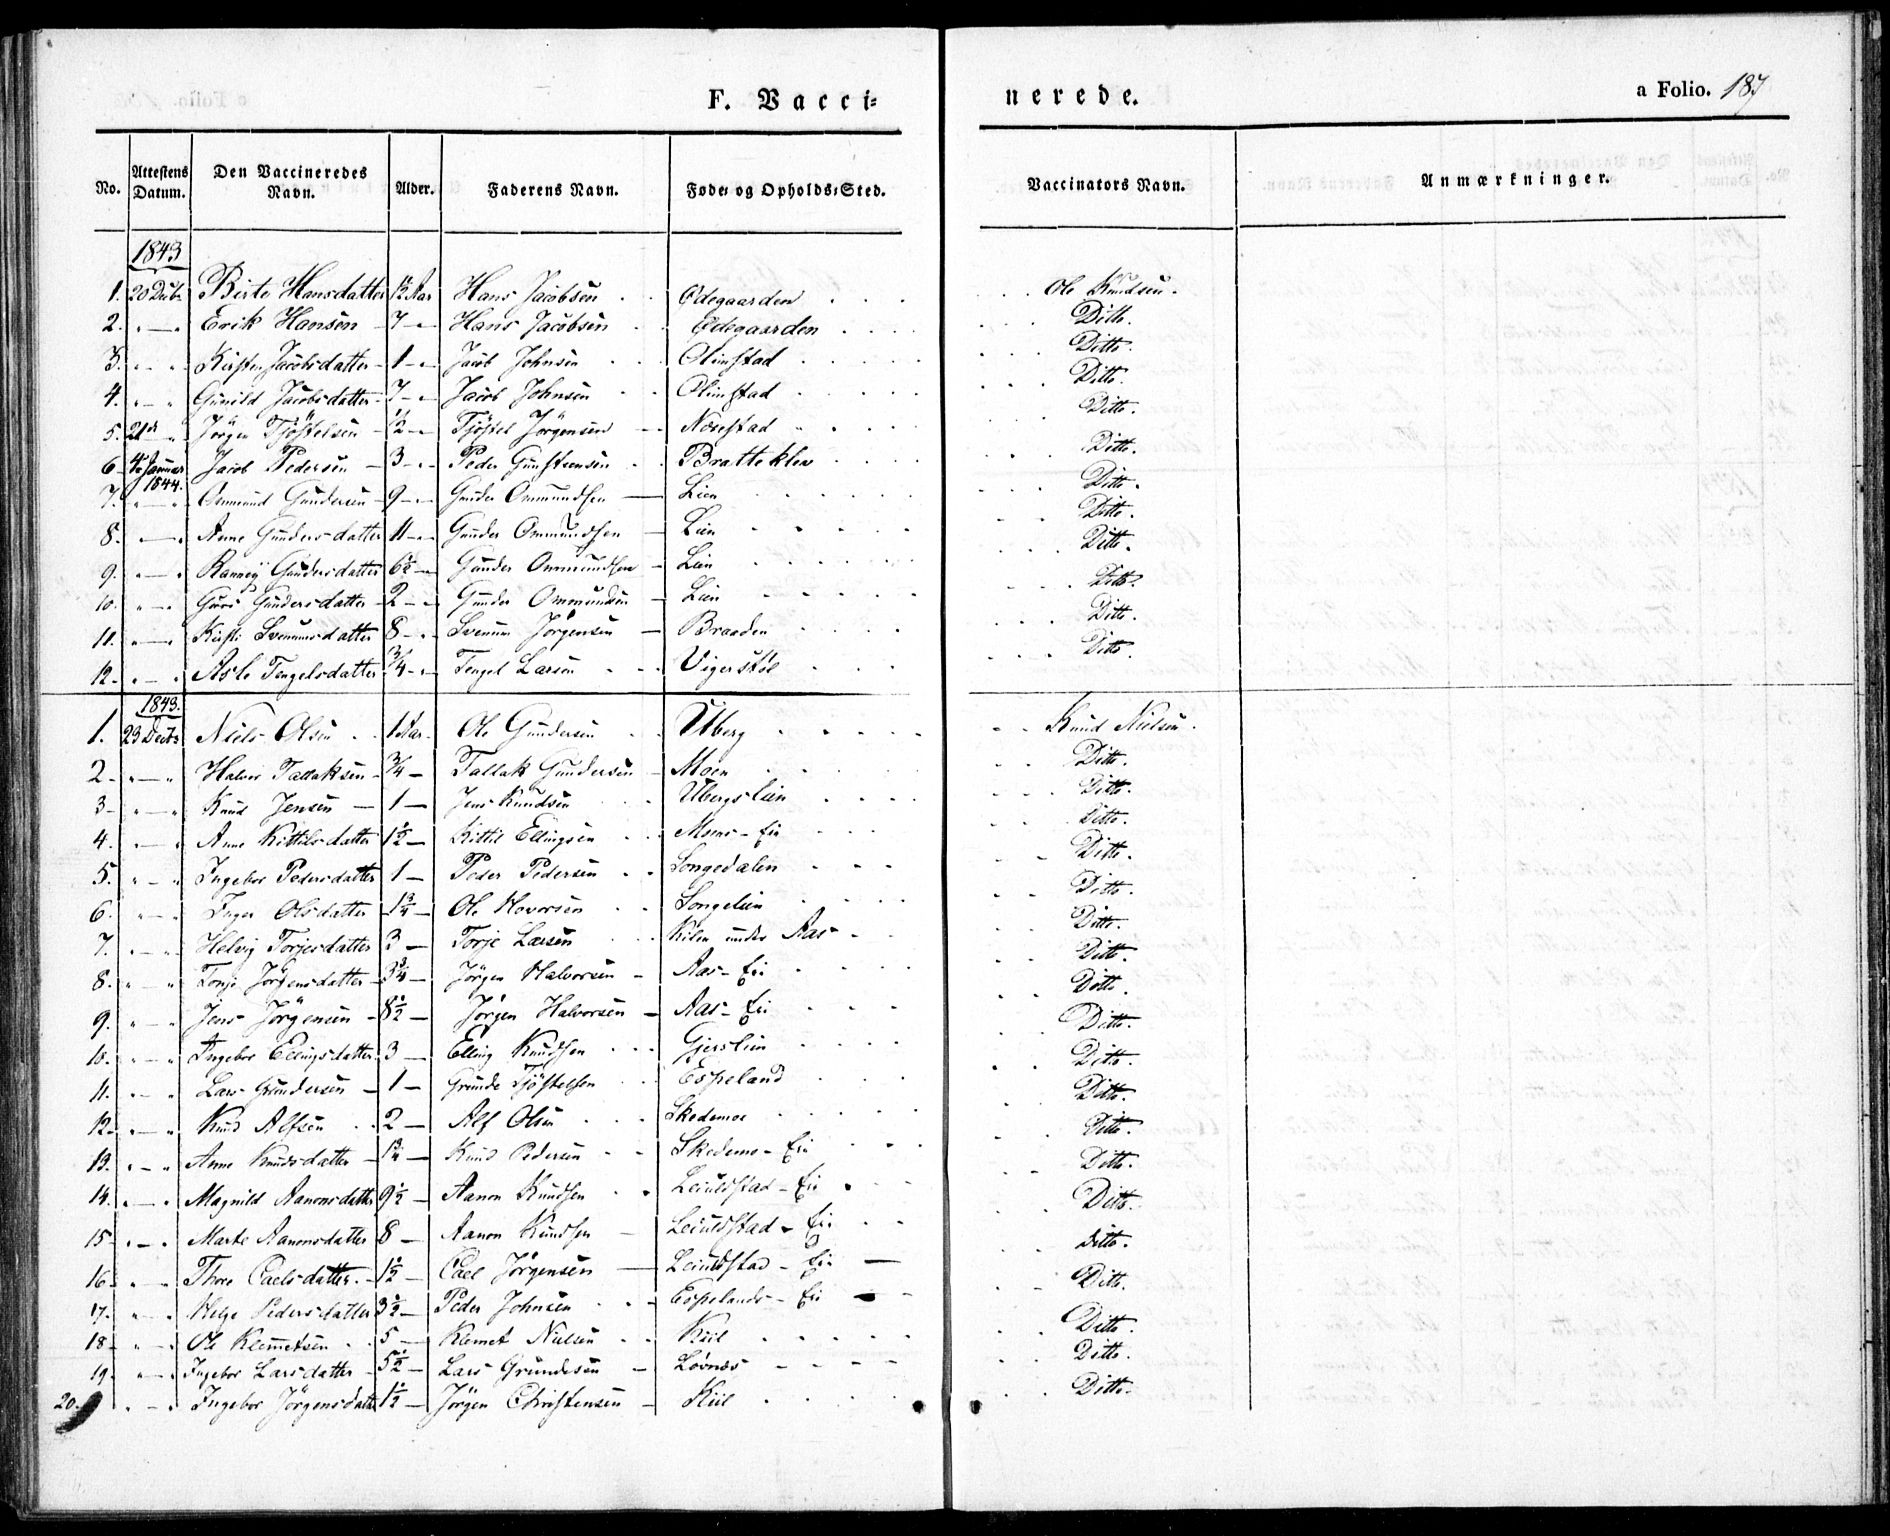 F. Vacci⸗ nerede. a Folio. 187
No. Attestens Datum. Den Vaccineredes Navn. Alder. Faderens Navn. Føde⸗ og Opholds⸗Sted. Vaccinators Navn. Anmærkninger.
1843
1. 20 Birte Hansdatter 1½ Aar Hans Jacobsen Ødegaarden Ole Knudsen.
2. " — " Erik Hansen 7 — " Hans Jacobsen Ødegaarden Ditto.
3. " — " Kirsten Jacobsdatter 1 — " Jacob Johnsen Olimstad Ditto.
4. " — " Gunild Jacobsdatter 7 — " Jacob Johnsen Olimstad Ditto.
5. 21de " Jörgen Tjöstelsen ½ — " Tjöstel Jörgensen Næsestad Ditto.
6 4de Januar 1844. Jacob Pedersen 3 — " Peder Gunstensen Bratteklev Ditto.
7. " — " Ommund Gundersen 9 — " Gunder Ommundsen Lien Ditto.
8. " — " Anne Gundersdatter 11 — " Gunder Ommundsen Lien Ditto.
9. " — " Gundersdatter 6½ — " Gunder Ommundsen Lien Ditto.
10. " — " Guro Gundersdatter 2 — " Gunder Ommundsen Lien Ditto.
11. " — " Kirsti Svenumsdatter 8 — " Svenum Jörgensen Braaden Ditto.
12. " — " Asle Tengelsdatter ¾ — " Tengel Larsen Vigerstöl Ditto.
1843.
1. 23 Decbr Niels Olsen 1 Aar Ole Gundersen Uberg Knud Nielsen.
2 — " — " Halvor Tallaksen ¾ — Tallak Gundersen Moen Ditto.
3 — " — " Knud Jensen 1 — Jens Knudsen Ubergslien Ditto.
4. " — " Anne Kittilsdatter 1½ — Kittil Ellingsen Moens - Eie Ditto.
5. " — " Ingebor Pedersdatter 1 — Peder Pedersen Songedalen Ditto.
6. " — " Inger Olsdatter 1¾ — Ole Hovorsen Songelien Ditto.
7. " — " Helvig Torjesdatter 3 — Torje Larsen Kilen under Aas Ditto.
8. " — " Tonje Jörgensdatter 3¾ — Jörgen Halvorsen Aas - Eie Ditto.
9. " — " Jens Jörgensen 8½ — Jörgen Halvorsen Aas - Eie Ditto.
10. " — " Ingebor Ellingsdatter 3 — Elling Knudsen Gjerslien Ditto.
11. " — " Lars Grundesen 1 — Grunde Tjöstelsen Espeland Ditto.
12. " — " Knud Alfsen 2 — Alf Olsen Skedsmoe Ditto.
13. " — " Anne Knudsdatter 1¾ — Knud Pedersen Skedsmo - Eie Ditto.
14. " — " Magnild Aanonsdatter 9½ — Aanon Knudsen Leiuldstad - Eie Ditto.
15 " — " Marte Aanonsdatter 8 — Aanon Knudsen Leiuldstad - Eie Ditto.
16. " — " Thore Caelsdatter 1½ — Cael Jörgensen Leiuldstad - Eie Ditto.
17. " — " Helge Pedersdatter 3½ — Peder Johnsen Espelands - Eie Ditto.
18 " — " Ole Klemetsen 5 — Klemet Nielsen Kiil Ditto.
19. " — " Ingebor Larsdatter 5½ — Lars Grundesen Lövnæs Ditto.
20. " — " Ingebor Jörgensdatter 1½ — Jörgen Christensen Kiil Ditto.